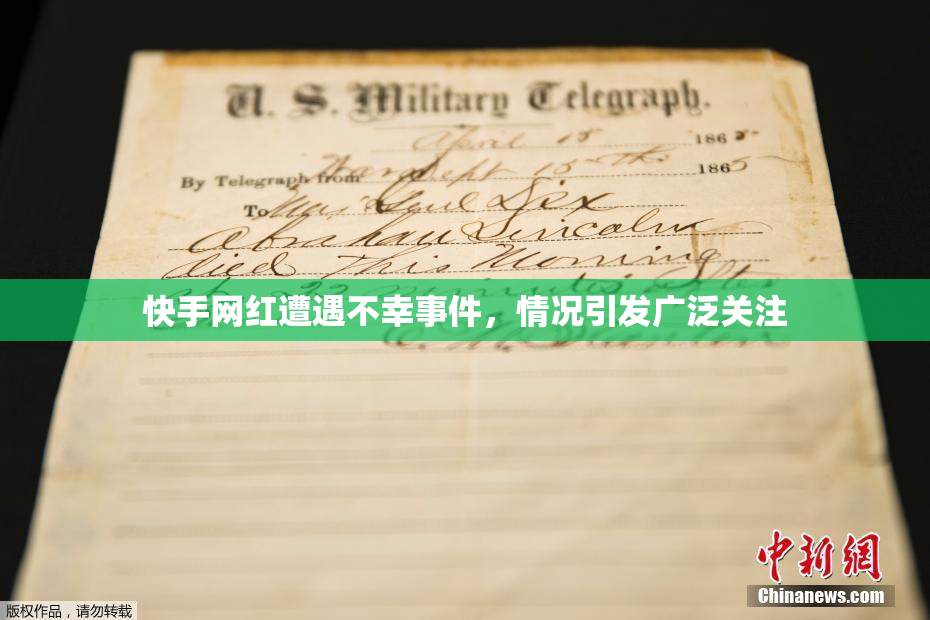 U. S. Military Telegraph.
April 15 1865
By Telegraph from War Dept 15th 1865
To Maj Genl Dix
Abraham Lincoln
died This Morning
at 22 minutes after
快手网红遭遇不幸事件，情况引发广泛关注
E. M. Stanton
中新网
Chinanews.com
版权作品，请勿转载